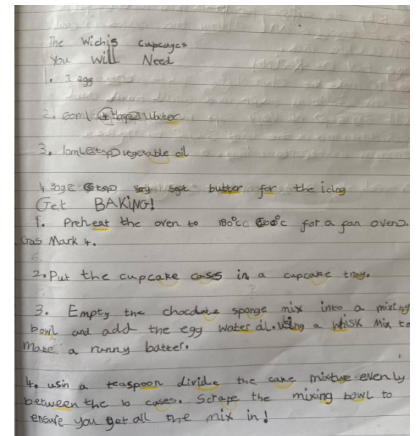 The Wichis cupcaycs
You Will Need
1. 1 egg
2. 60ml (4 tbsp) Water
3. 10ml (2 tsp) vegetable oil
4. 30g very soft butter for the icing
Get BAKING!
1. Preheat the oven to 180°c 160°c for a fan oven)
Gas Mark 4.
2. Put the cupcake cases in a cupcake tray.
3. Empty the chocolate sponge mix into a mixing
bowl and add the egg water oil. Using a whisk mix to
make a runny batter.
4. usin a teaspoon divide the cake mixture evenly
between the 10 cases. Scrape the mixing bowl to
ensure you get all the mix in!